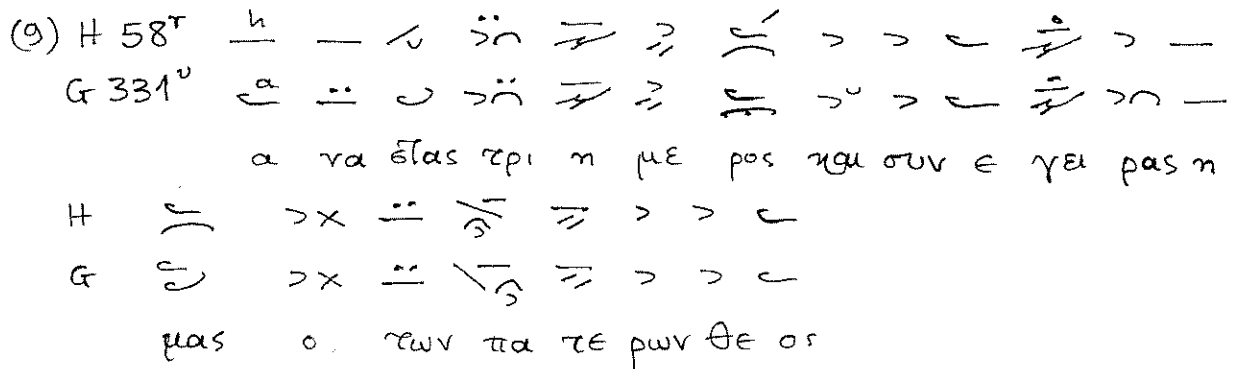 (9) H 58r
G 331v
α να στας τρι η με ρος και συν ε γει ρας η
H
G
μας ο των πα τε ρων θε ος